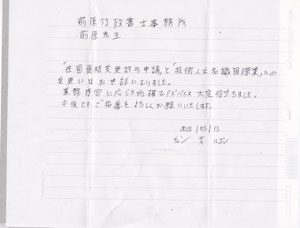 前原行政書士事務所
前原先生
「在留資格変更許可申請」と「技術・人文知識国際業」への
変更にはお世話になりました。
業務内容に応じた的確なアドバイス大変役立ちました。
今後ともご指導をよろしくお願いいたします。
2015/05/13